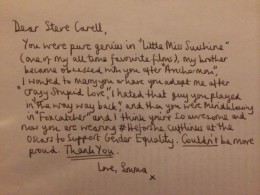 Dear Steve Carell,
You were pure genius in "Little Miss Sunshine"
(one of my all time favourite films), my brother
became obsessed with you after "Anchorman",
I wanted to marry you where you adopt me after
"Crazy Stupid Love", I hated that guy you played
in "The Way Way back", and then you were Mindblowing
in "Foxcatcher" and I think you're so awesome and
now you are wearing #HeforShe Cufflinks at the
Oscars to Support Gender Equality. Couldn't be more
proud. Thank You.
Love, Emma
x